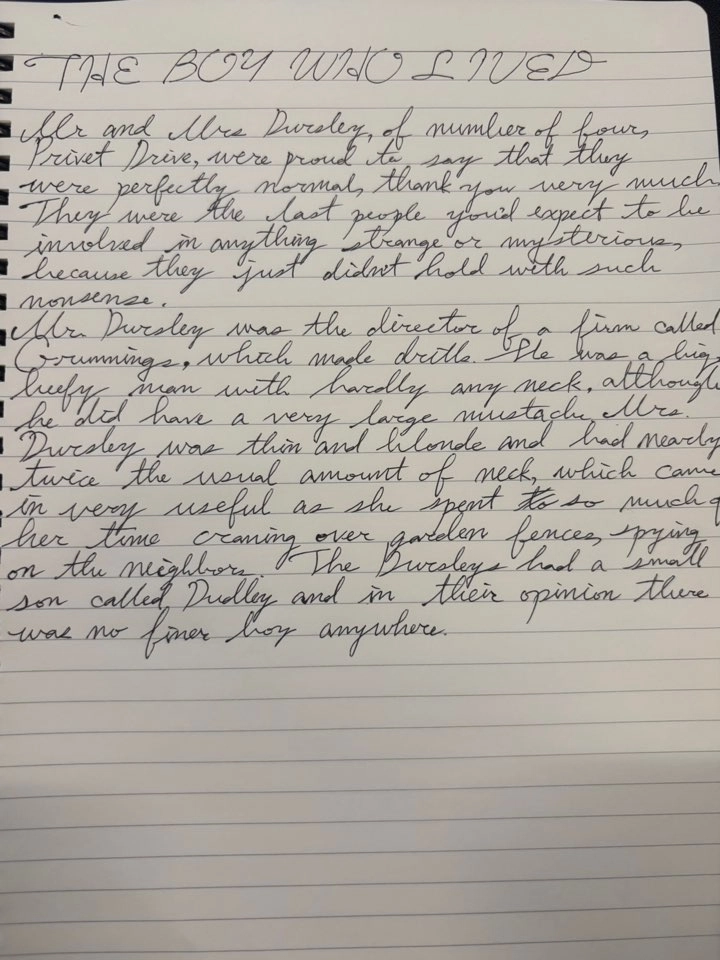 THE BOY WHO LIVED
Mr and Mrs Dursley, of number of four,
Privet Drive, were proud to say that they
were perfectly normal, thank you very much.
They were the last people you'd expect to be
involved in anything strange or mysterious,
because they just didn't hold with such
nonsense.
Mr. Dursley was the director of a firm called
Grummings, which made drills. He was a big,
beefy man with hardly any neck, although
he did have a very large mustache. Mrs.
Dursley was thin and blonde and had nearly
twice the usual amount of neck, which came
in very useful as she spent so much of
her time craning over garden fences, spying
on the neighbors. The Dursleys had a small
son called Dudley and in their opinion there
was no finer boy anywhere.